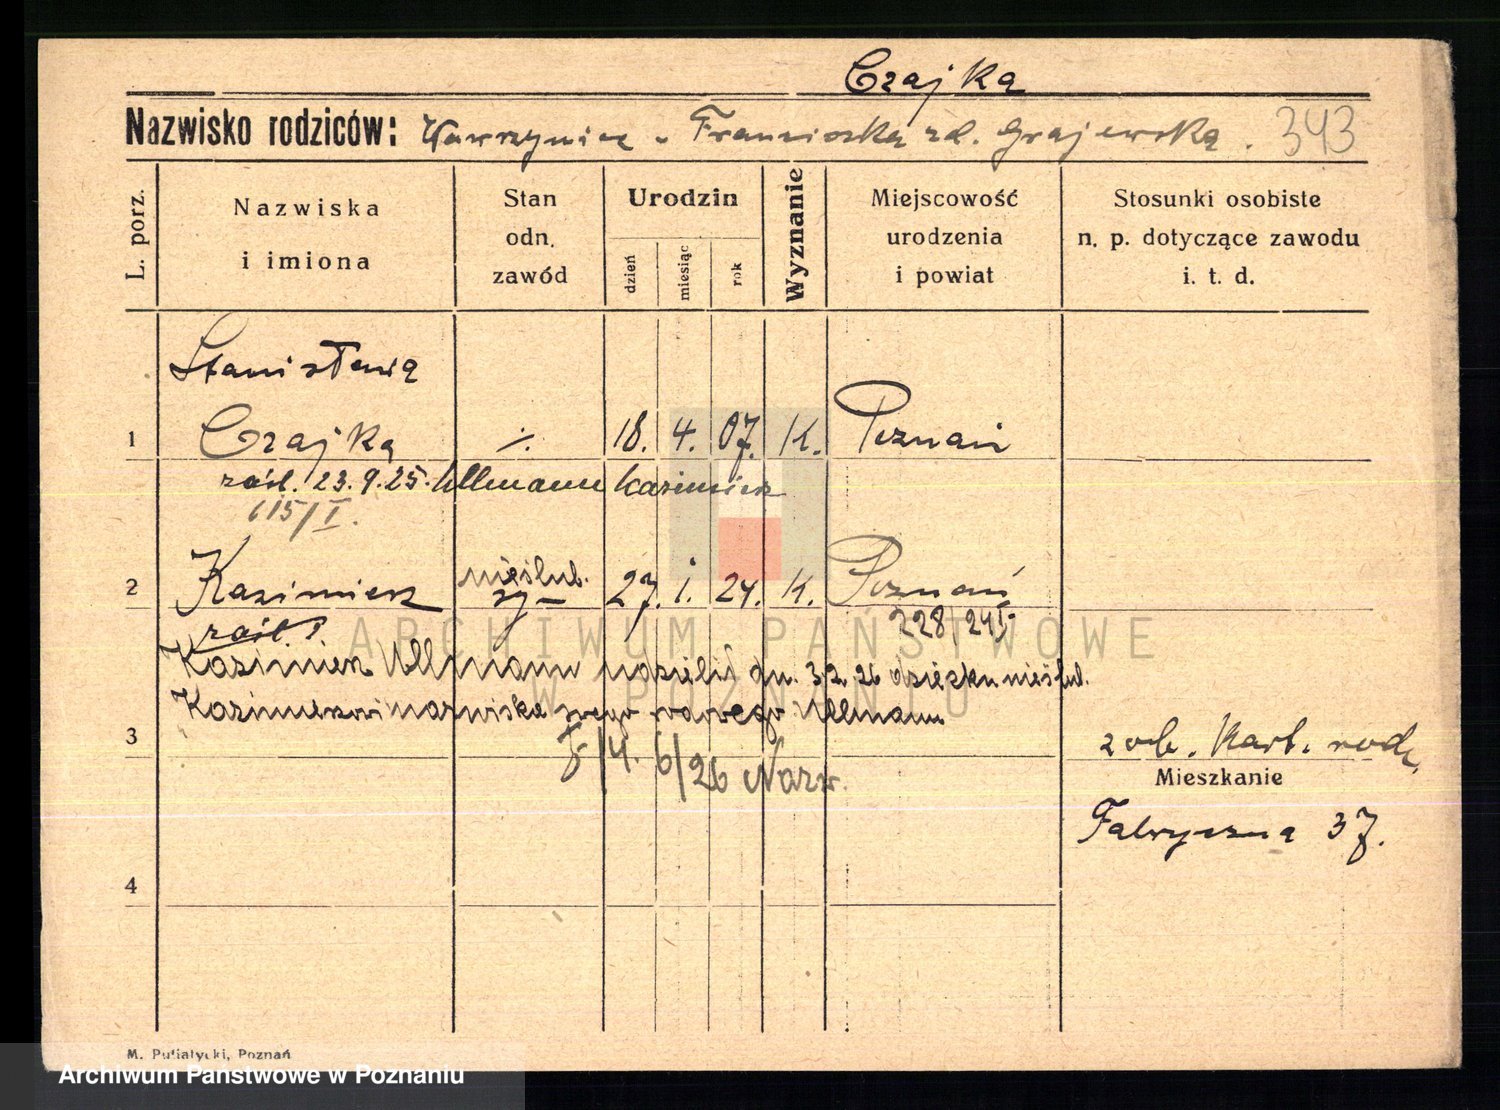 Czajka
Nazwisko rodziców: Wawrzyniec - Franciszka zd. Grajewska. 343
L. porz.
Nazwiska
i imiona
Stan
odn.
zawód
Urodzin
dzień
miesiąc
rok
Wyznanie
Miejscowość
urodzenia
i powiat
Stosunki osobiste
n. p. dotyczące zawodu
i. t. d.
Stanisława
1 Czajka ./. 18. 4. 07. K. Poznań
zaśl. 23.9.25. Ullmann Kazimierz
615/I.
nieślub.
2 Kazimierz sy- 27. 1. 24. K. Poznań
zaśl. 228/24
Kazimierz Ullmann udzielił dn. 3.2.26 dziecku nieślub.
Kazimierzowi nazwiska swego Ullmann
3
zob. Kart. rodz.
4. 6/26 Nazw.
Mieszkanie
Fabryczna 37.
4
M. Putiatycki, Poznań
ARCHIWUM PAŃSTWOWE
W POZNANIU
Archiwum Państwowe w Poznaniu